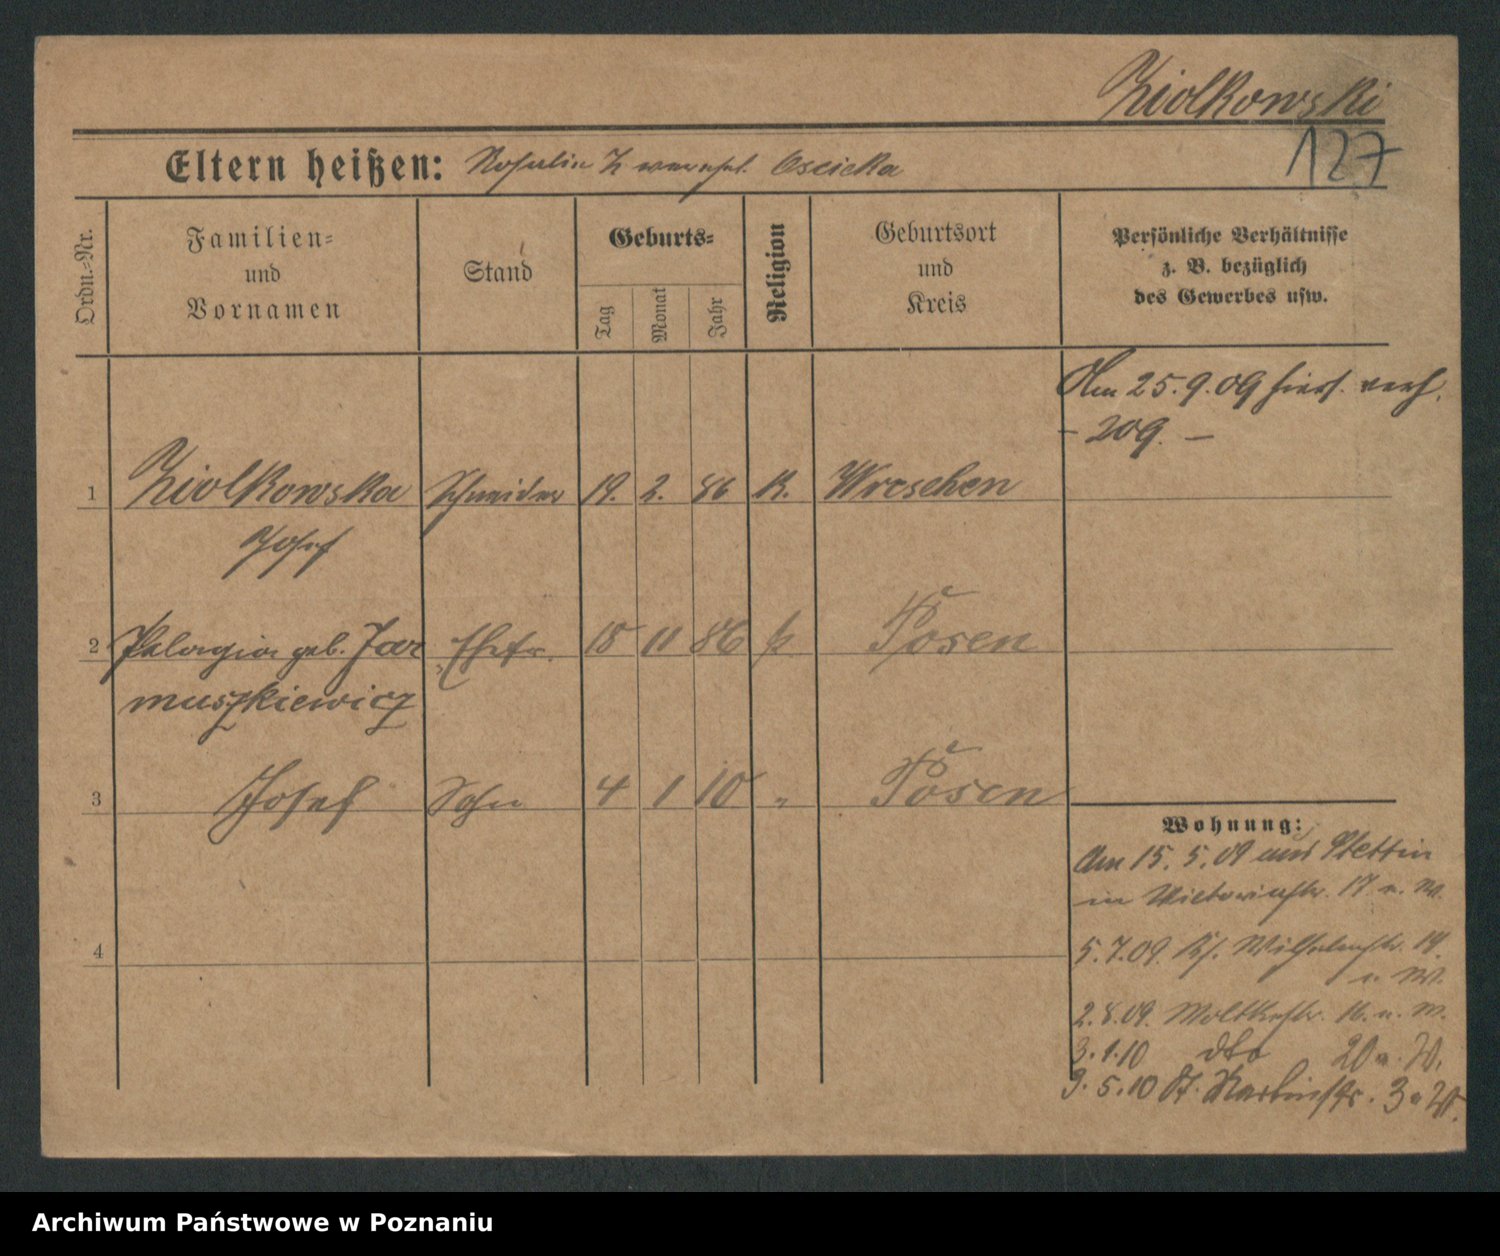 Ziolkowski
127
Eltern heißen: Rosalie Z verehel. Oscicka
Ordn.=Nr.
Familien=
und
Vornamen
Stand
Geburts=
Tag
Monat
Jahr
Religion
Geburtsort
und
Kreis
Persönliche Verhältnisse
z. B. bezüglich
des Gewerbes usw.
Am 25.9.09 hier verh.
- 209. -
1 Ziolkowska Schneider 19. 2. 86 K. Wreschen
Josef
2 Pelagia geb. Jar Ehefr. 15 11 86 k. Posen
muszkiewicz
3 Josef Sohn 4 1 10 " Posen
Wohnung:
Am 15. 5. 09 aus Stettin
in Victoriastr. 17 n. W.
5.7.09. Wilhelmstr. 14.
n. W.
2.8.09. Moltkestr. 16. n. W.
3.1.10 dto 20 n. W.
9.5.10 St. Martinstr. 3 n W.
4
Archiwum Państwowe w Poznaniu